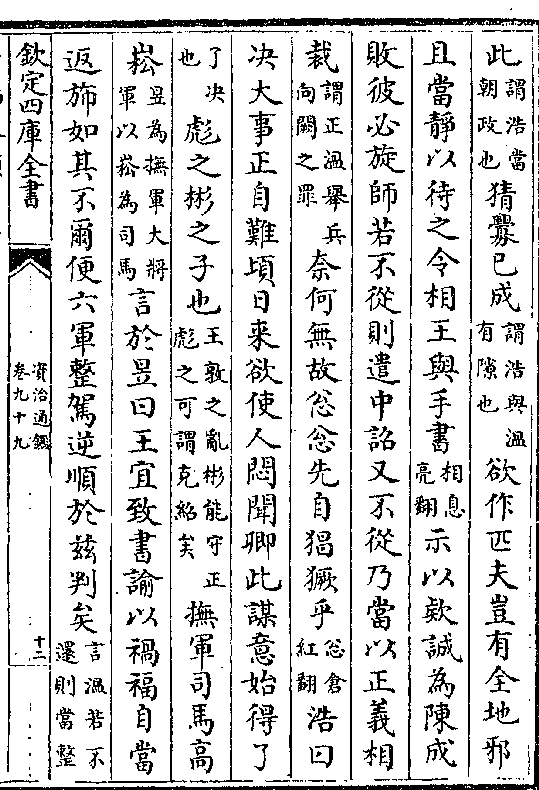 此謂浩當朝政也猜釁已成謂浩與溫有隙也欲作匹夫豈有全地邪
且當靜以待之令相王與手書相息亮翻示以欵誠為陳成
敗彼必旋師若不從則遣中詔又不從乃當以正義相
裁謂正溫舉兵向闕之罪奈何無故怱怱先自猖獗乎怱倉紅翻浩曰
决大事正自難頃日来欲使人悶聞卿此謀意始得了
了决也彪之彬之子也王敦之亂彬能守正彪之可謂克紹矣撫軍司馬高
崧昱為撫軍大將軍以崧為司馬言於昱曰王宜致書諭以禍福自當
返斾如其不爾便六軍整駕逆順於兹判矣言溫若不還則當整
欽定四庫全書
資治通鑑
卷九十九
十二